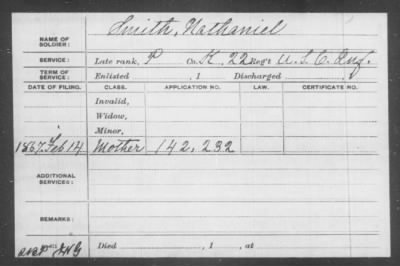 NAME OF SOLDIER: Smith, Nathaniel
SERVICE: Late rank, P Co. K, 22 Reg't U.S.C. Inf.
TERM OF SERVICE: Enlisted , 1 Discharged , 1
DATE OF FILING. CLASS. APPLICATION NO. LAW. CERTIFICATE NO.
Invalid,
Widow,
Minor,
1867, Feb 14 Mother 142,232
ADDITIONAL SERVICES:
REMARKS:
Died , 1 , at